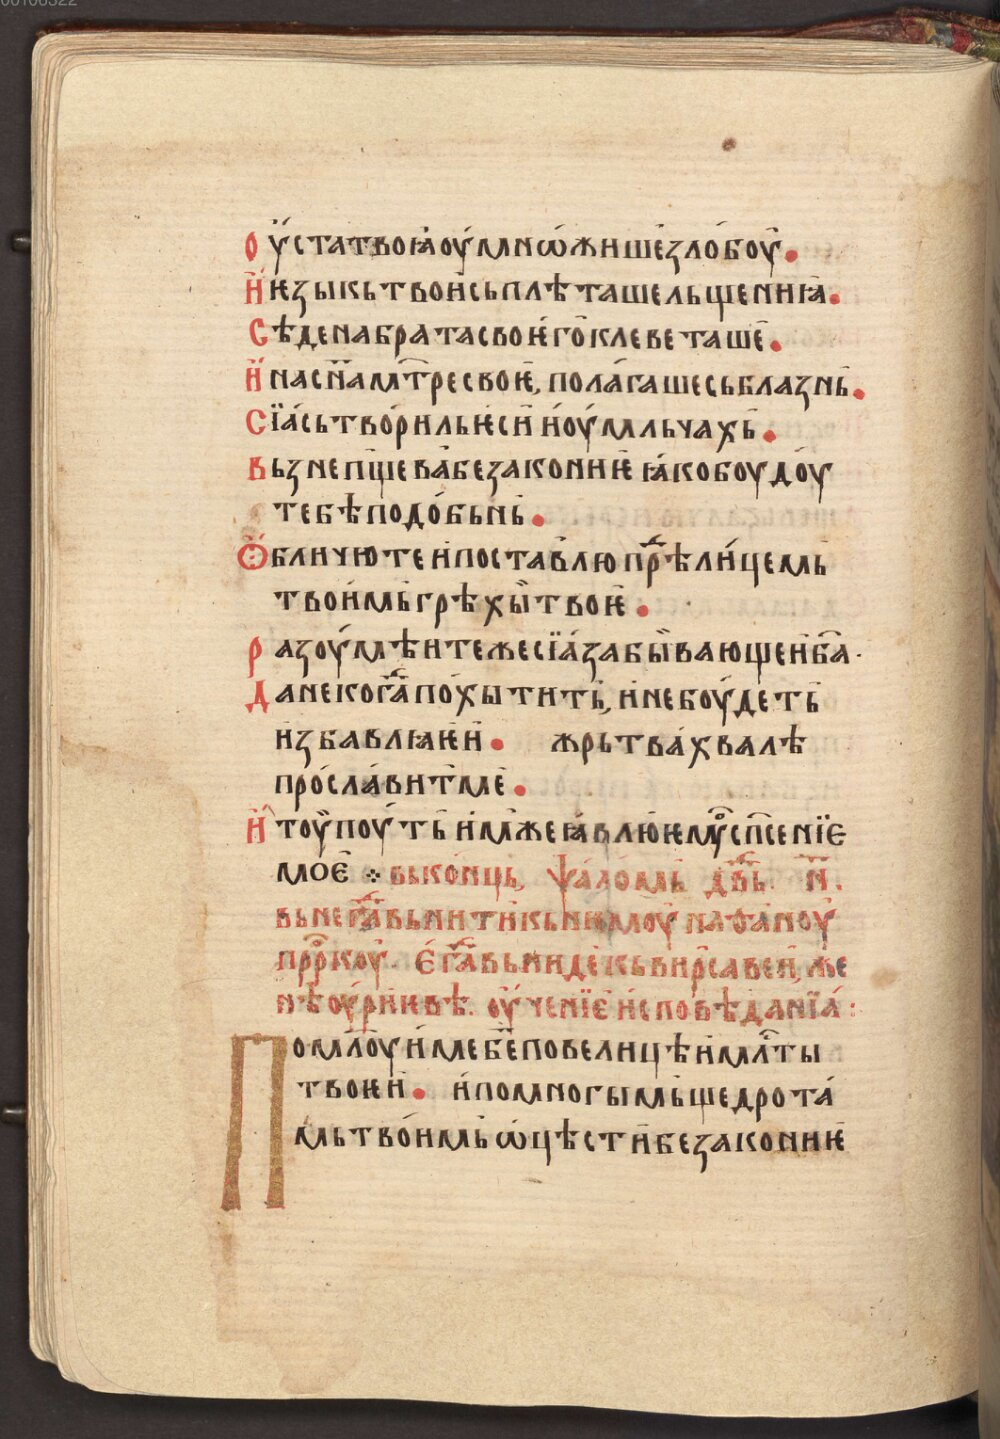 00106322
Оу҆ста твоꙗ оу҆мнѡ́жише зло́боу.
И҆ ѥзыкь твои҆ сьплѣташе льщениꙗ.
Сѣде на брата своѥ҆го клеветаше.
И҆ на сн҃а мт҃ре своѥ, пола́гаше сьблазнь.
Сїа́ сьтвори́ль ѥси и҆ оу҆мльчахь.
вьзнепщева безаконниѥ ꙗ҆ко боудоу
тебѣ подо́бьнь.
Ѡ҆бличю те и поставлю прѣⷣ ли́цемь
твои҆мь грѣхы твоѥ.
разоу҆мѣите же сїа́ забывающеи ба҃.
да не когдⷶа похытить, и не боу́деть
избавлꙗѥи. жрьтва́ хвалѣ
просла́вит ме.
И҆ тоу поу́ть имже ꙗвлю ѥмоуⷤ сп҃сенїе
моѐ ⁘ вь ко́нць, ѱа́ломь дв҃дь. н҃.
вьнегⷣа вьнити кь нѥмоу наѳаноу
прⷪ҇ркоу. Е҆гⷣа вьниде кь вирсавеи, же
нѣ оу҆риѥвѣ. оу҆ченїе исповѣданїа:
Помлоуⷤи ме бе҃ по велицѣи млⷭти
твоѥи. и по многымь щедрота́
мь твои҆мь ѡ҆цѣсти безаконниѥ